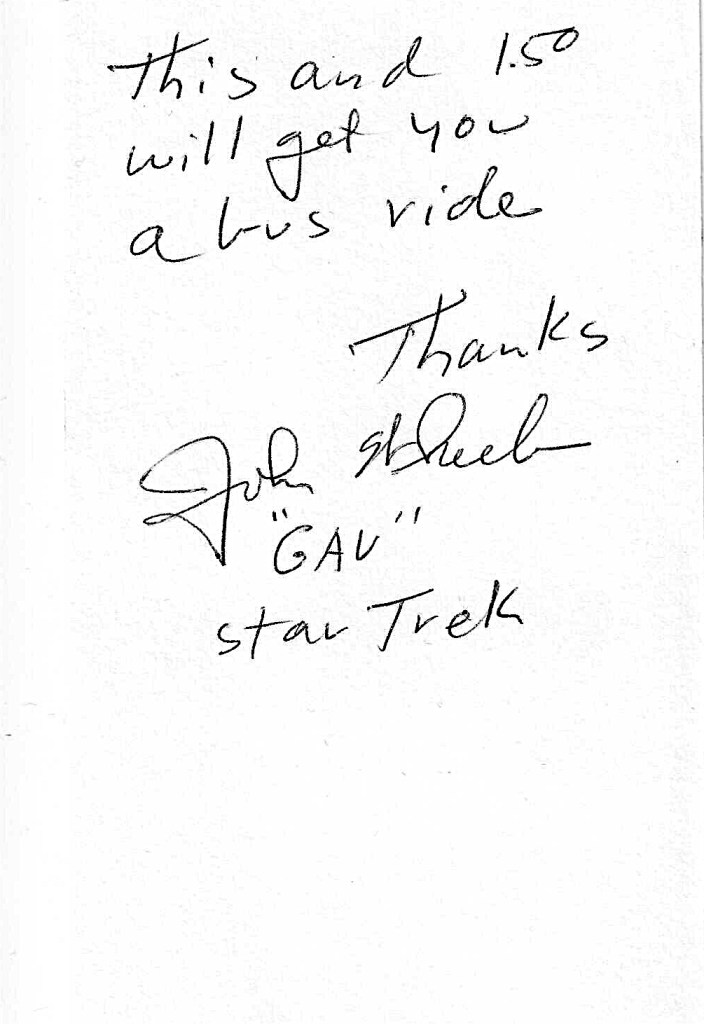 This and 1.50
will get you
a bus ride
Thanks
John Wheeler
"GAV"
Star Trek